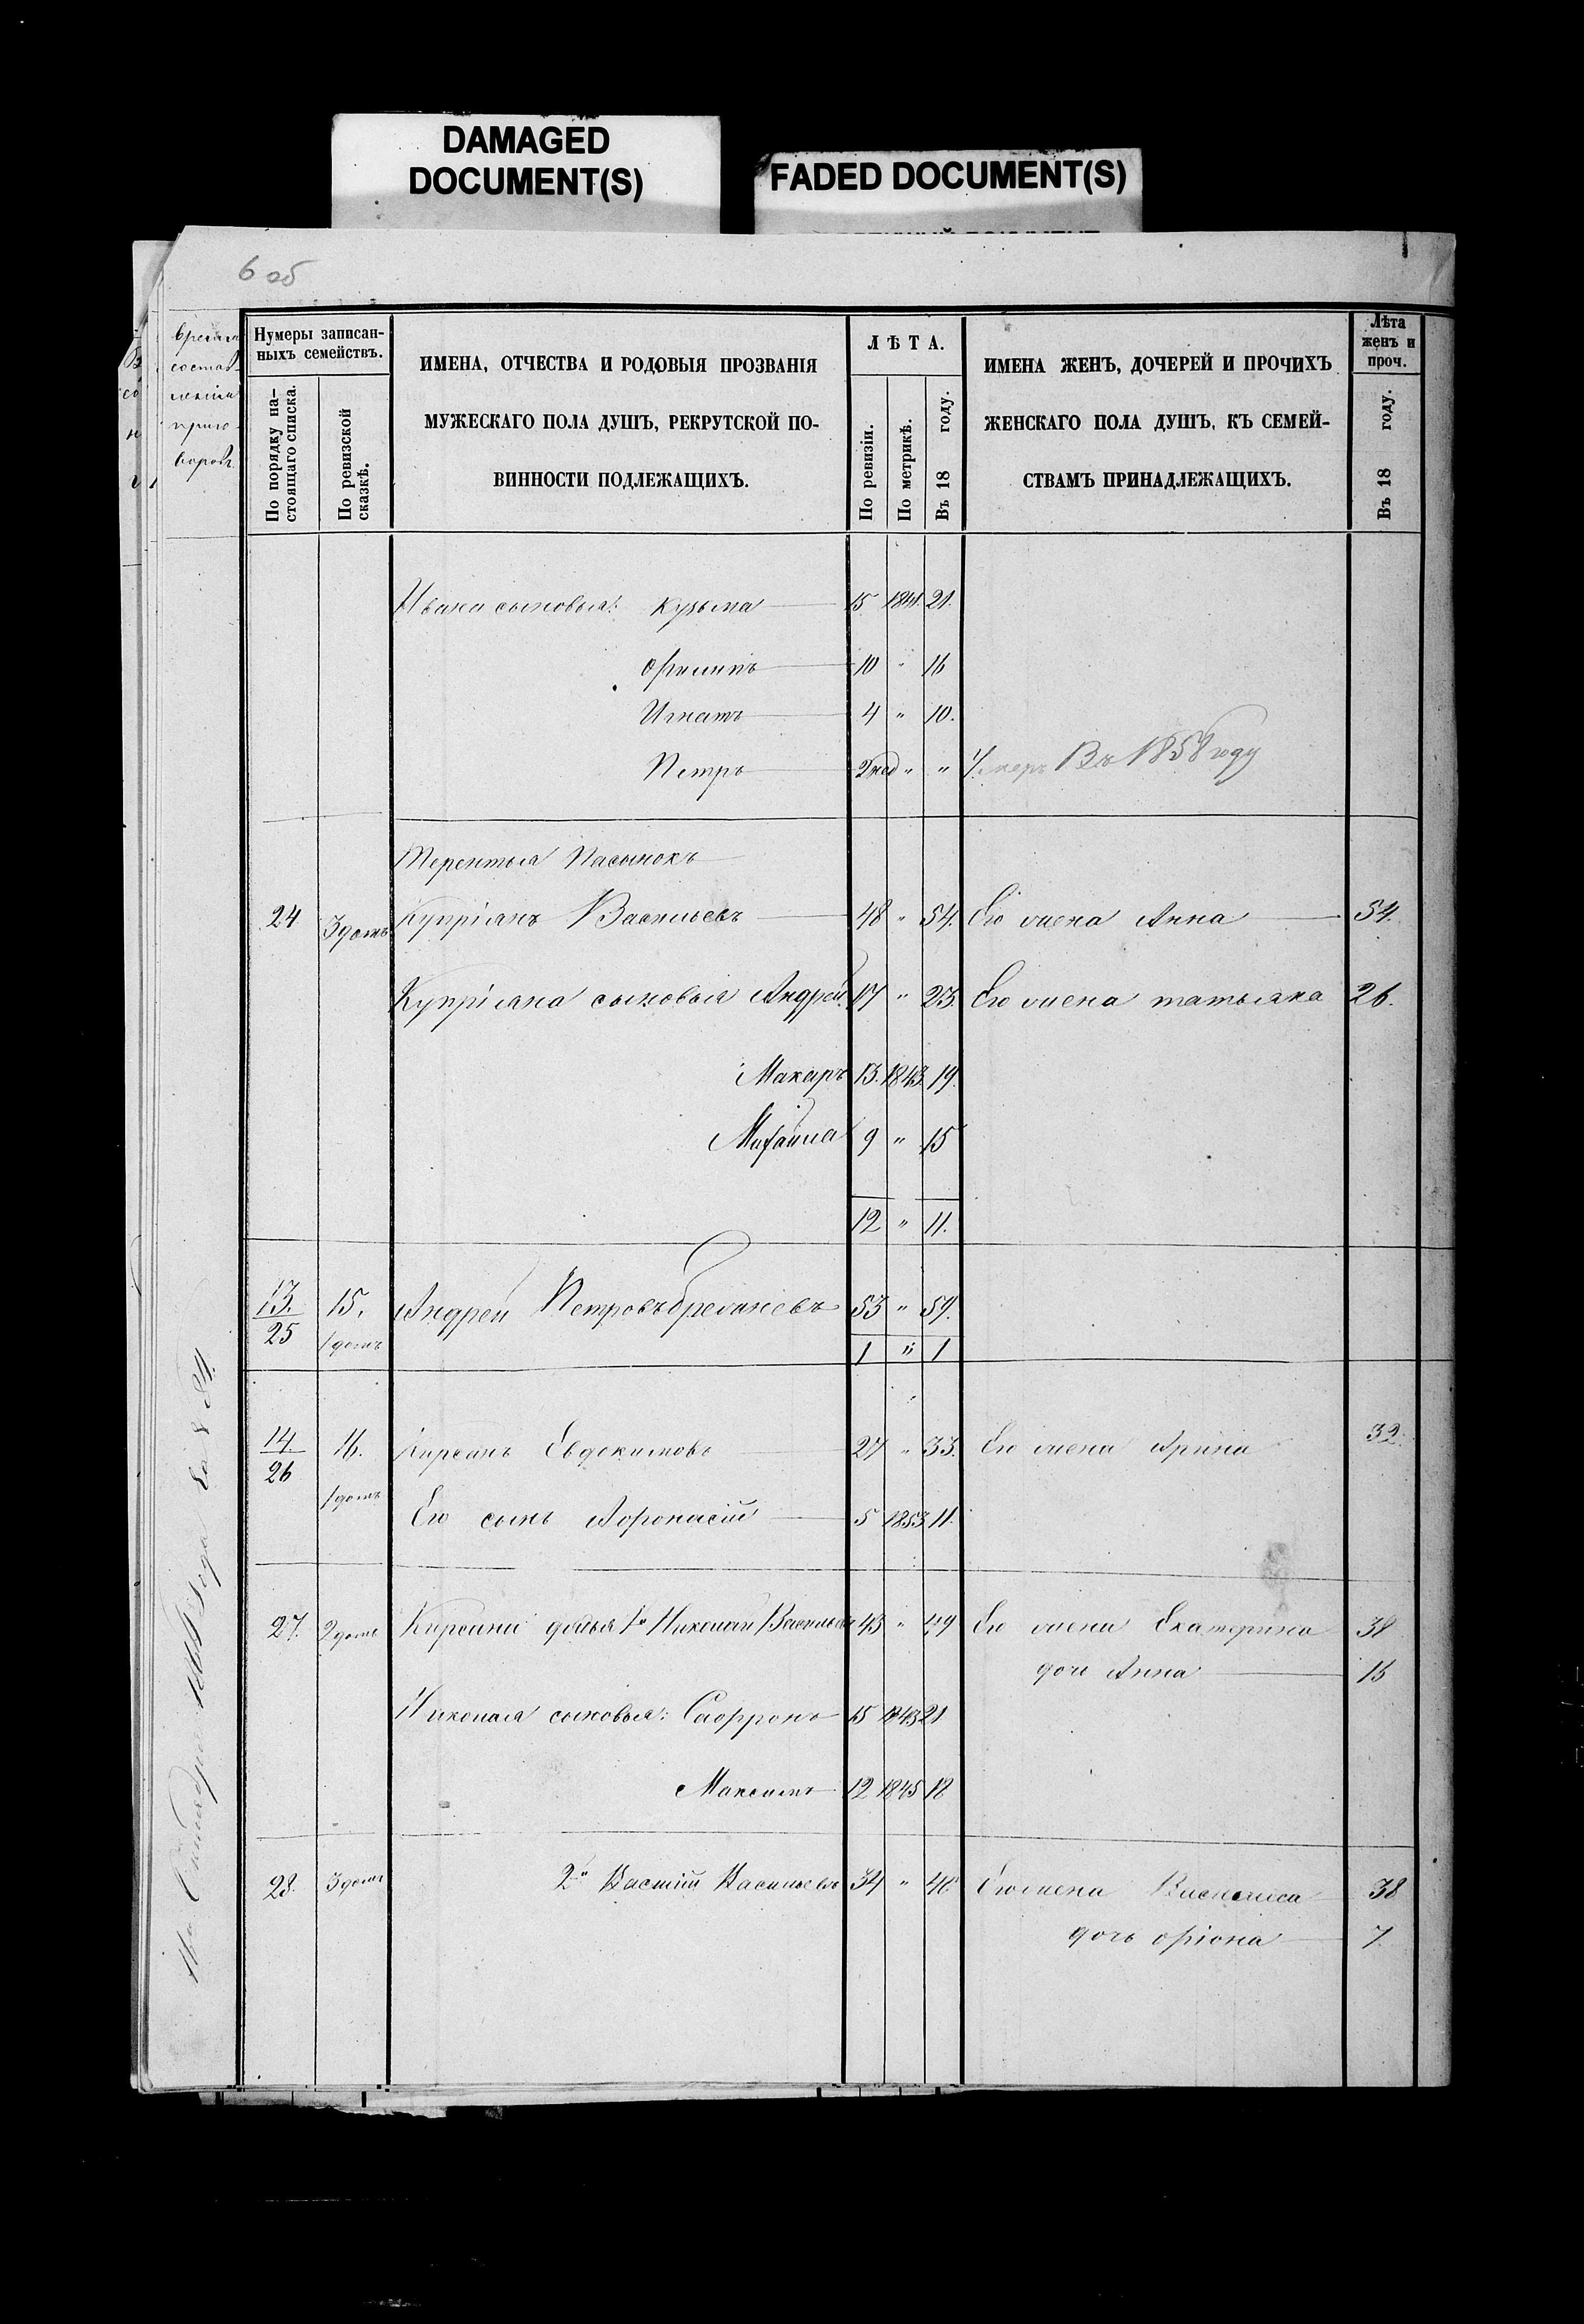 DAMAGED
DOCUMENT(S)
FADED DOCUMENT(S)
6 об
Нумеры записан-
ныхъ семействъ.
По порядку на-
стоящаго списка.
По ревизской
сказкѣ.
ИМЕНА, ОТЧЕСТВА И РОДОВЫЯ ПРОЗВАНІЯ
МУЖЕСКАГО ПОЛА ДУШЪ, РЕКРУТСКОЙ ПО-
ВИННОСТИ ПОДЛЕЖАЩИХЪ.
ЛѢТА.
По ревизіи.
По метрикѣ.
Въ 18 году.
ИМЕНА ЖЕНЪ, ДОЧЕРЕЙ И ПРОЧИХЪ
ЖЕНСКАГО ПОЛА ДУШЪ, КЪ СЕМЕЙ-
СТВАМЪ ПРИНАДЛЕЖАЩИХЪ.
Лѣта
женъ и
проч.
Въ 18 году.
Ивана сыновья: Кузьма 15 1841 21.
Филипъ 10 " 16
Игнатъ 4 " 10.
Петръ 2 нед " " Умеръ Въ 1858 году
Терентья Пасынокъ
24 3 домъ Купріянъ Васильевъ 48 " 54. Его жена Анна 54.
Купріяна сыновья Андрей 17 " 23. Его жена татьяна 26.
Макаръ 13. 1843. 19.
Михайла 9 " 15
12 " 11.
13. 15. Андрей Петровъ 53 " 59.
25 1 домъ
1 " 1
14 16. Кирсанъ Евдокимовъ 27 " 33. Его жена Арина 32.
26
1 домъ
Его сынъ Афонасій 5 1853 11.
27. 2 домъ Кирсана дядья 1й Николай Васильевъ 43 " 49 Его жена Екатерина 38
доч Анна 15
Николая сыновья: Сафронъ 15 1843 21
Максимъ 12 1845 18
28. 3 домъ 2й Василій Васильевъ 34 " 40 Его жена Василиса 38
дочь 7.